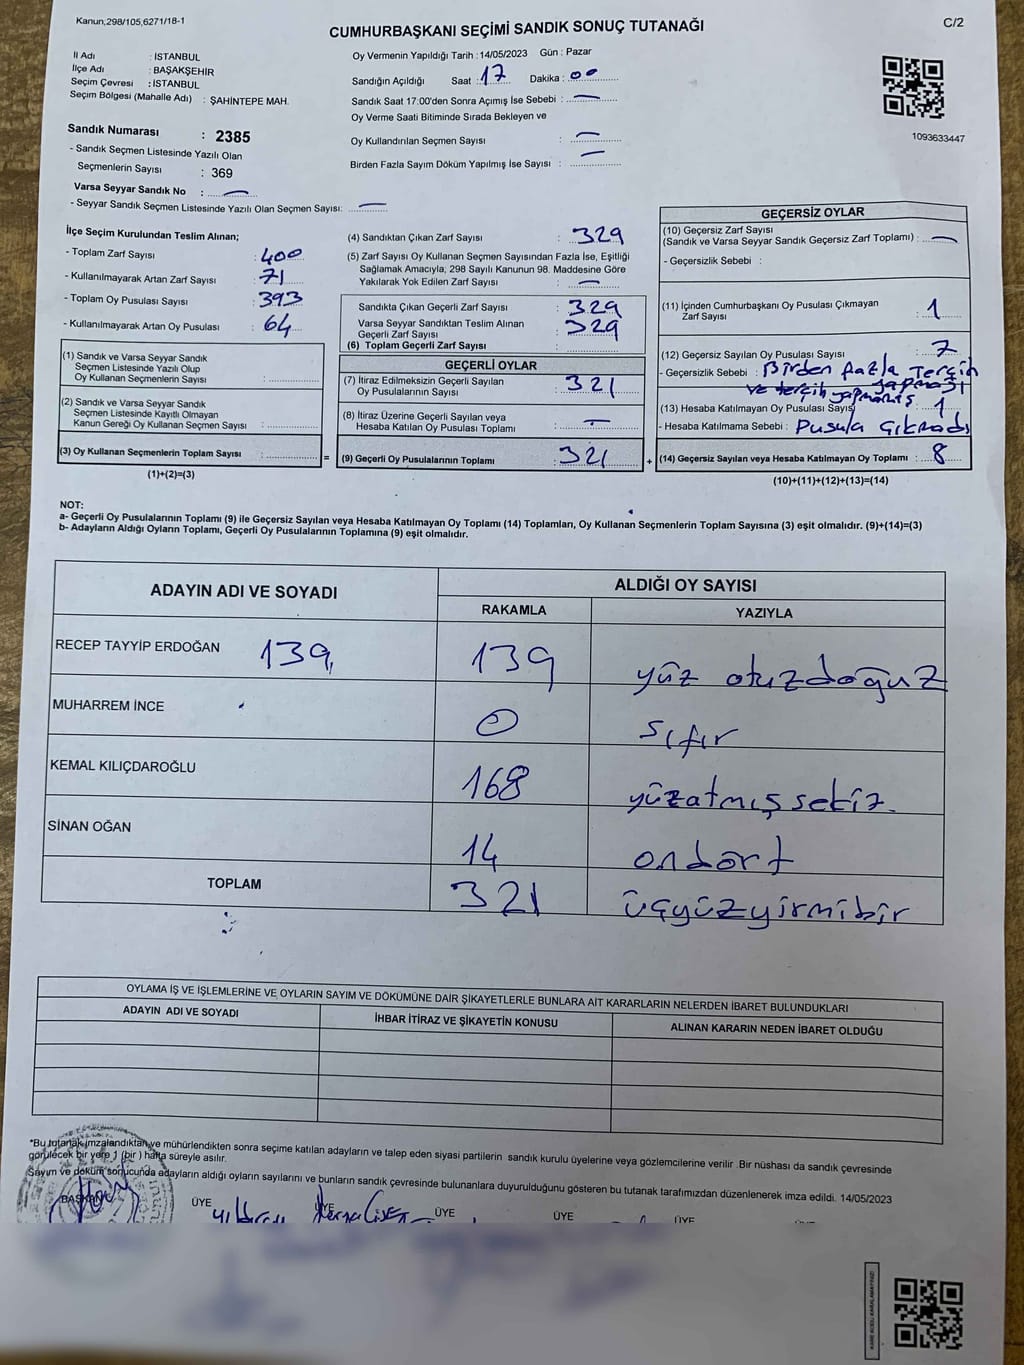 Kanun,298/105,6271/18-1
C/2
CUMHURBAŞKANI SEÇİMİ SANDIK SONUÇ TUTANAĞI
İl Adı : İSTANBUL
İlçe Adı : BAŞAKŞEHİR
Seçim Çevresi : İSTANBUL
Seçim Bölgesi (Mahalle Adı) : ŞAHİNTEPE MAH.
Sandık Numarası : 2385
- Sandık Seçmen Listesinde Yazılı Olan
Seçmenlerin Sayısı : 369
Varsa Seyyar Sandık No : —
- Seyyar Sandık Seçmen Listesinde Yazılı Olan Seçmen Sayısı: —
Oy Vermenin Yapıldığı Tarih : 14/05/2023 Gün : Pazar
Sandığın Açıldığı Saat : 17 Dakika : 00
Sandık Saat 17:00'den Sonra Açımış İse Sebebi : —
Oy Verme Saati Bitiminde Sırada Bekleyen ve
Oy Kullandırılan Seçmen Sayısı : —
Birden Fazla Sayım Döküm Yapılmış İse Sayısı : —
1093633447
İlçe Seçim Kurulundan Teslim Alınan;
- Toplam Zarf Sayısı : 400
- Kullanılmayarak Artan Zarf Sayısı : 71
- Toplam Oy Pusulası Sayısı : 393
- Kullanılmayarak Artan Oy Pusulası : 64
(1) Sandık ve Varsa Seyyar Sandık
Seçmen Listesinde Yazılı Olup
Oy Kullanan Seçmenlerin Sayısı :
(2) Sandık ve Varsa Seyyar Sandık
Seçmen Listesinde Kayıtlı Olmayan
Kanun Gereği Oy Kullanan Seçmen Sayısı :
(3) Oy Kullanan Seçmenlerin Toplam Sayısı : =
(1)+(2)=(3)
(4) Sandıktan Çıkan Zarf Sayısı : 329
(5) Zarf Sayısı Oy Kullanan Seçmen Sayısından Fazla İse, Eşitliği
Sağlamak Amacıyla, 298 Sayılı Kanunun 98. Maddesine Göre
Yakılarak Yok Edilen Zarf Sayısı : —
Sandıkta Çıkan Geçerli Zarf Sayısı : 329
Varsa Seyyar Sandıktan Teslim Alınan
Geçerli Zarf Sayısı : 329
(6) Toplam Geçerli Zarf Sayısı :
GEÇERLİ OYLAR
(7) İtiraz Edilmeksizin Geçerli Sayılan
Oy Pusulalarının Sayısı : 321
(8) İtiraz Üzerine Geçerli Sayılan veya
Hesaba Katılan Oy Pusulası Toplamı : —
(9) Geçerli Oy Pusulalarının Toplamı : 321 +
GEÇERSİZ OYLAR
(10) Geçersiz Zarf Sayısı
(Sandık ve Varsa Seyyar Sandık Geçersiz Zarf Toplamı) : —
- Geçersizlik Sebebi :
(11) İçinden Cumhurbaşkanı Oy Pusulası Çıkmayan
Zarf Sayısı : 1
(12) Geçersiz Sayılan Oy Pusulası Sayısı : 7
- Geçersizlik Sebebi : Birden fazla Tercih
yapmağı
ve tercih yapmamış
(13) Hesaba Katılmayan Oy Pusulası Sayısı : 1
- Hesaba Katılmama Sebebi : Pusula çıkmadı
(14) Geçersiz Sayılan veya Hesaba Katılmayan Oy Toplamı : 8
(10)+(11)+(12)+(13)=(14)
NOT:
a- Geçerli Oy Pusulalarının Toplamı (9) ile Geçersiz Sayılan veya Hesaba Katılmayan Oy Toplamı (14) Toplamları, Oy Kullanan Seçmenlerin Toplam Sayısına (3) eşit olmalıdır. (9)+(14)=(3)
b- Adayların Aldığı Oyların Toplamı, Geçerli Oy Pusulalarının Toplamına (9) eşit olmalıdır.
ADAYIN ADI VE SOYADI
ALDIĞI OY SAYISI
RAKAMLA YAZIYLA
RECEP TAYYİP ERDOĞAN 139, 139 yüz otuzdoğuz
MUHARREM İNCE 0 sıfır
KEMAL KILIÇDAROĞLU 168 yüzatmış sekiz.
SİNAN OĞAN 14 ondört
TOPLAM 321 üçyüzyirmibir
OYLAMA İŞ VE İŞLEMLERİNE VE OYLARIN SAYIM VE DÖKÜMÜNE DAİR ŞİKAYETLERLE BUNLARA AİT KARARLARIN NELERDEN İBARET BULUNDUKLARI
ADAYIN ADI VE SOYADI İHBAR İTİRAZ VE ŞİKAYETİN KONUSU ALINAN KARARIN NEDEN İBARET OLDUĞU
*Bu tutanak imzalandıktan ve mühürlendikten sonra seçime katılan adayların ve talep eden siyasi partilerin sandık kurulu üyelerine veya gözlemcilerine verilir .Bir nüshası da sandık çevresinde
görülecek bir yere 1 (bir ) hafta süreyle asılır.
Sayım ve döküm sonucunda adayların aldığı oyların sayılarını ve bunların sandık çevresinde bulunanlara duyurulduğunu gösteren bu tutanak tarafımızdan düzenlenerek imza edildi. 14/05/2023
BAŞKAN ÜYE ÜYE ÜYE ÜYE ÜYE ÜYE